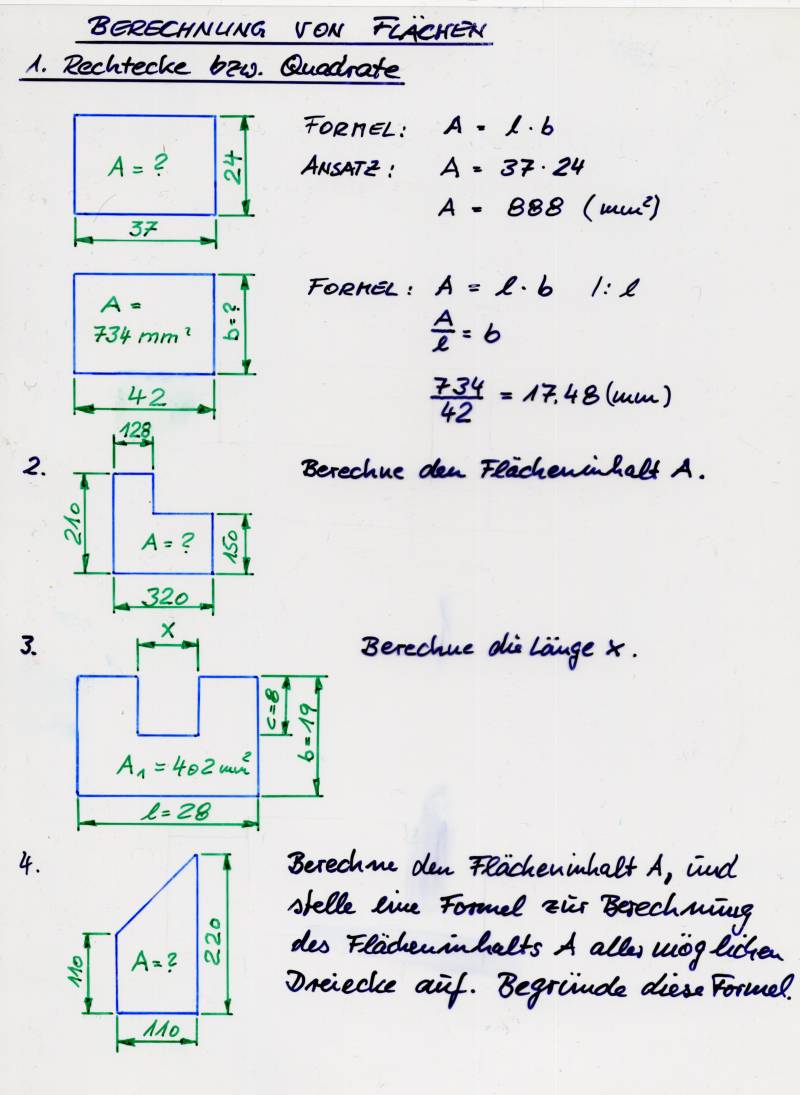 BERECHNUNG VON FLÄCHEN
1. Rechtecke bzw. Quadrate
A = ?
24
37
FORMEL: A = l · b
ANSATZ: A = 37 · 24
A = 888 (mm²)
A =
734 mm²
b = ?
42
FORMEL: A = l · b /: l
A/l = b
734/42 = 17,48 (mm)
2.
128
210
A = ?
150
320
Berechne den Flächeninhalt A.
3.
x
c=8
b=19
A₁ = 402 mm²
l = 28
Berechne die Länge x.
4.
110
A = ?
220
110
Berechne den Flächeninhalt A, und
stelle eine Formel zur Berechnung
des Flächeninhalts A aller möglichen
Dreiecke auf. Begründe diese Formel.